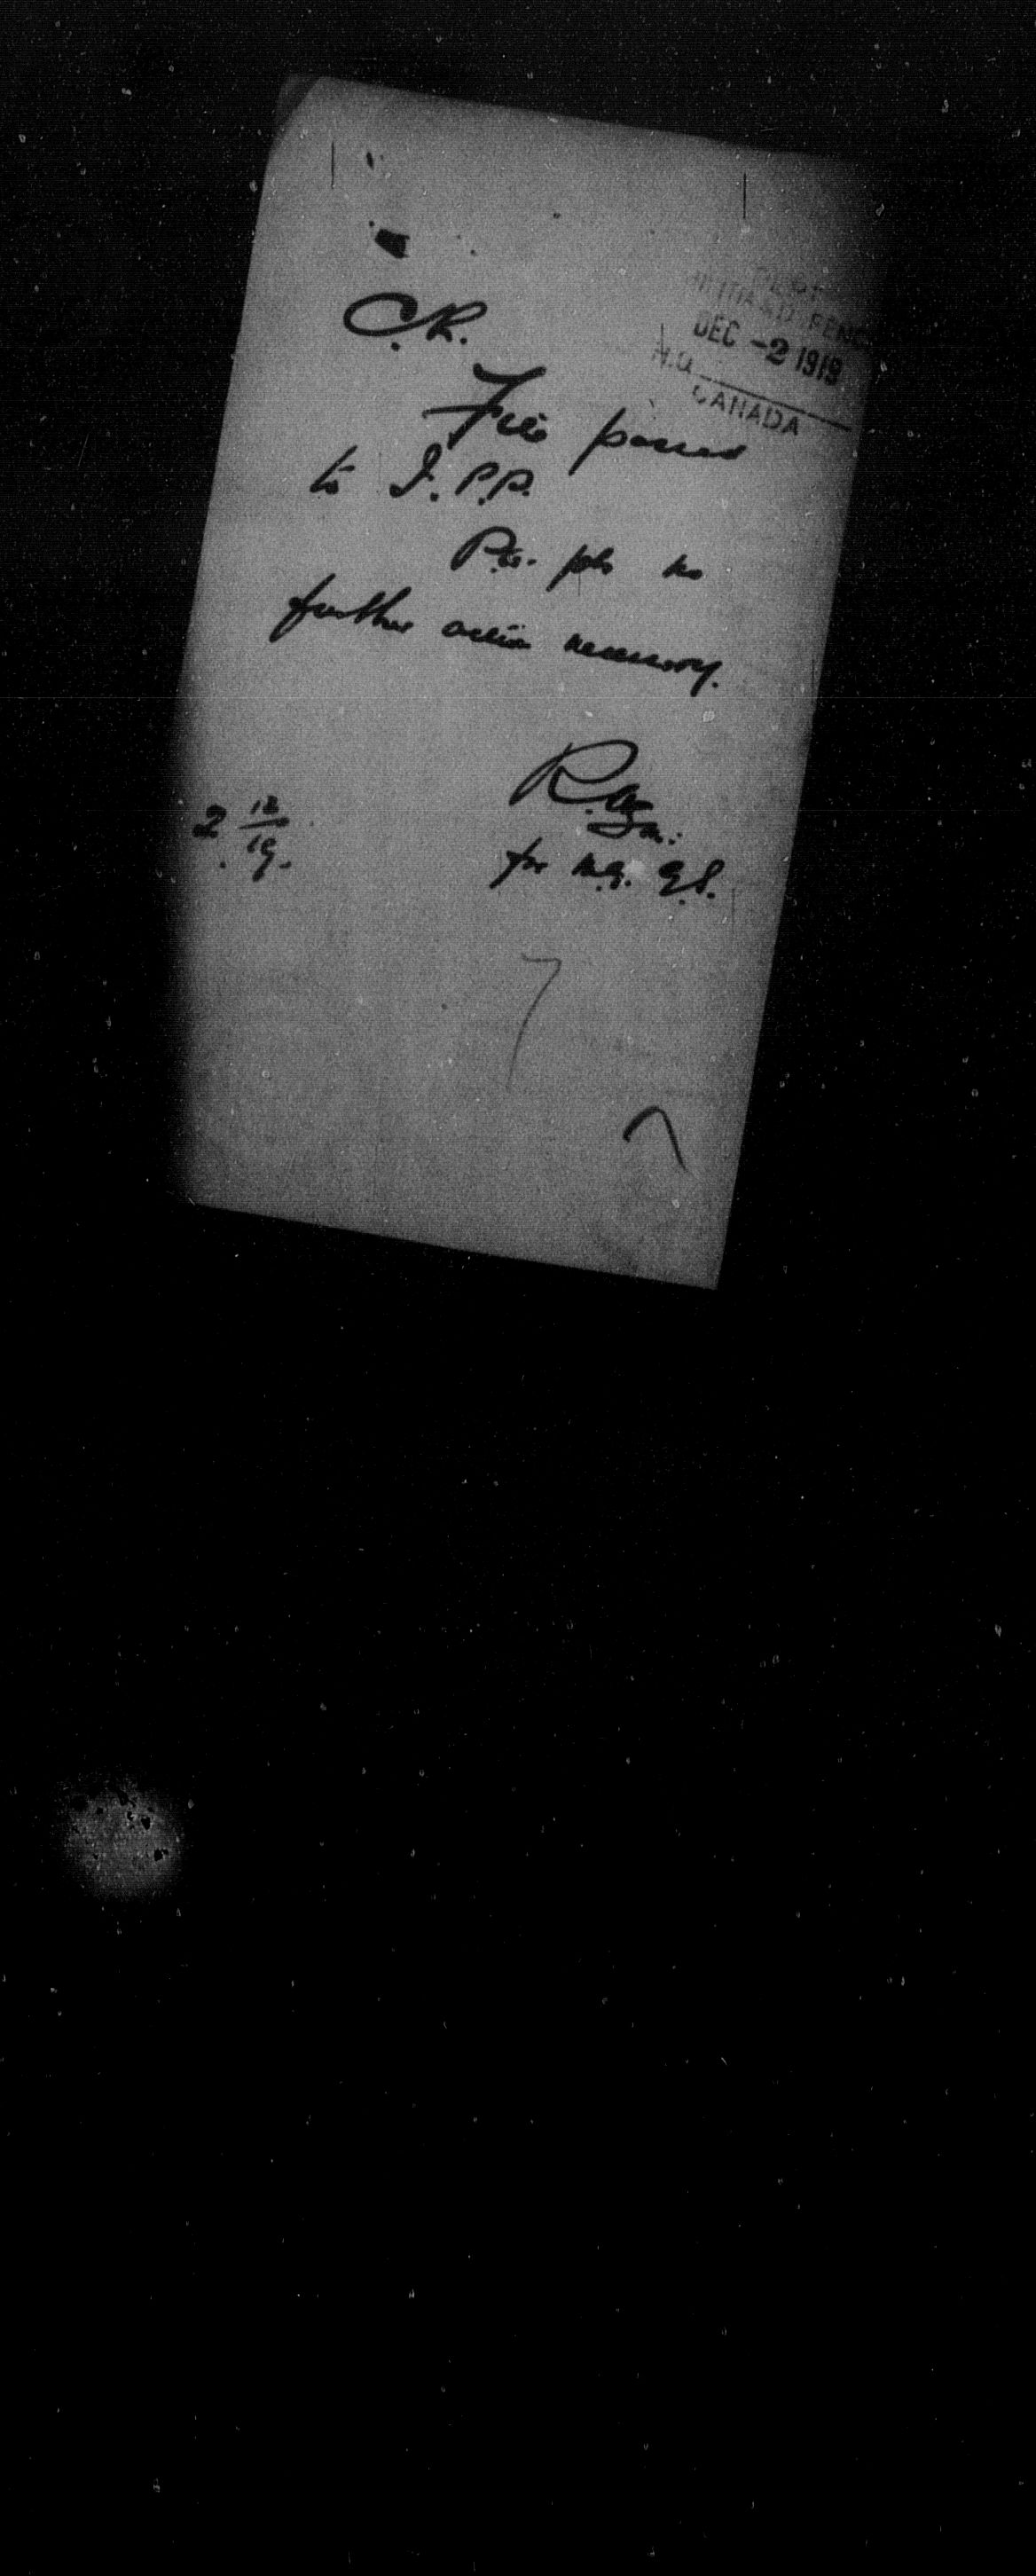 DEPT.
MILITIA AND DEFENCE
DEC -2 1919
H.Q.
CANADA
C.R.
File passed
to I.P.P.
no
further action necessary.
2 12/19.
for
7